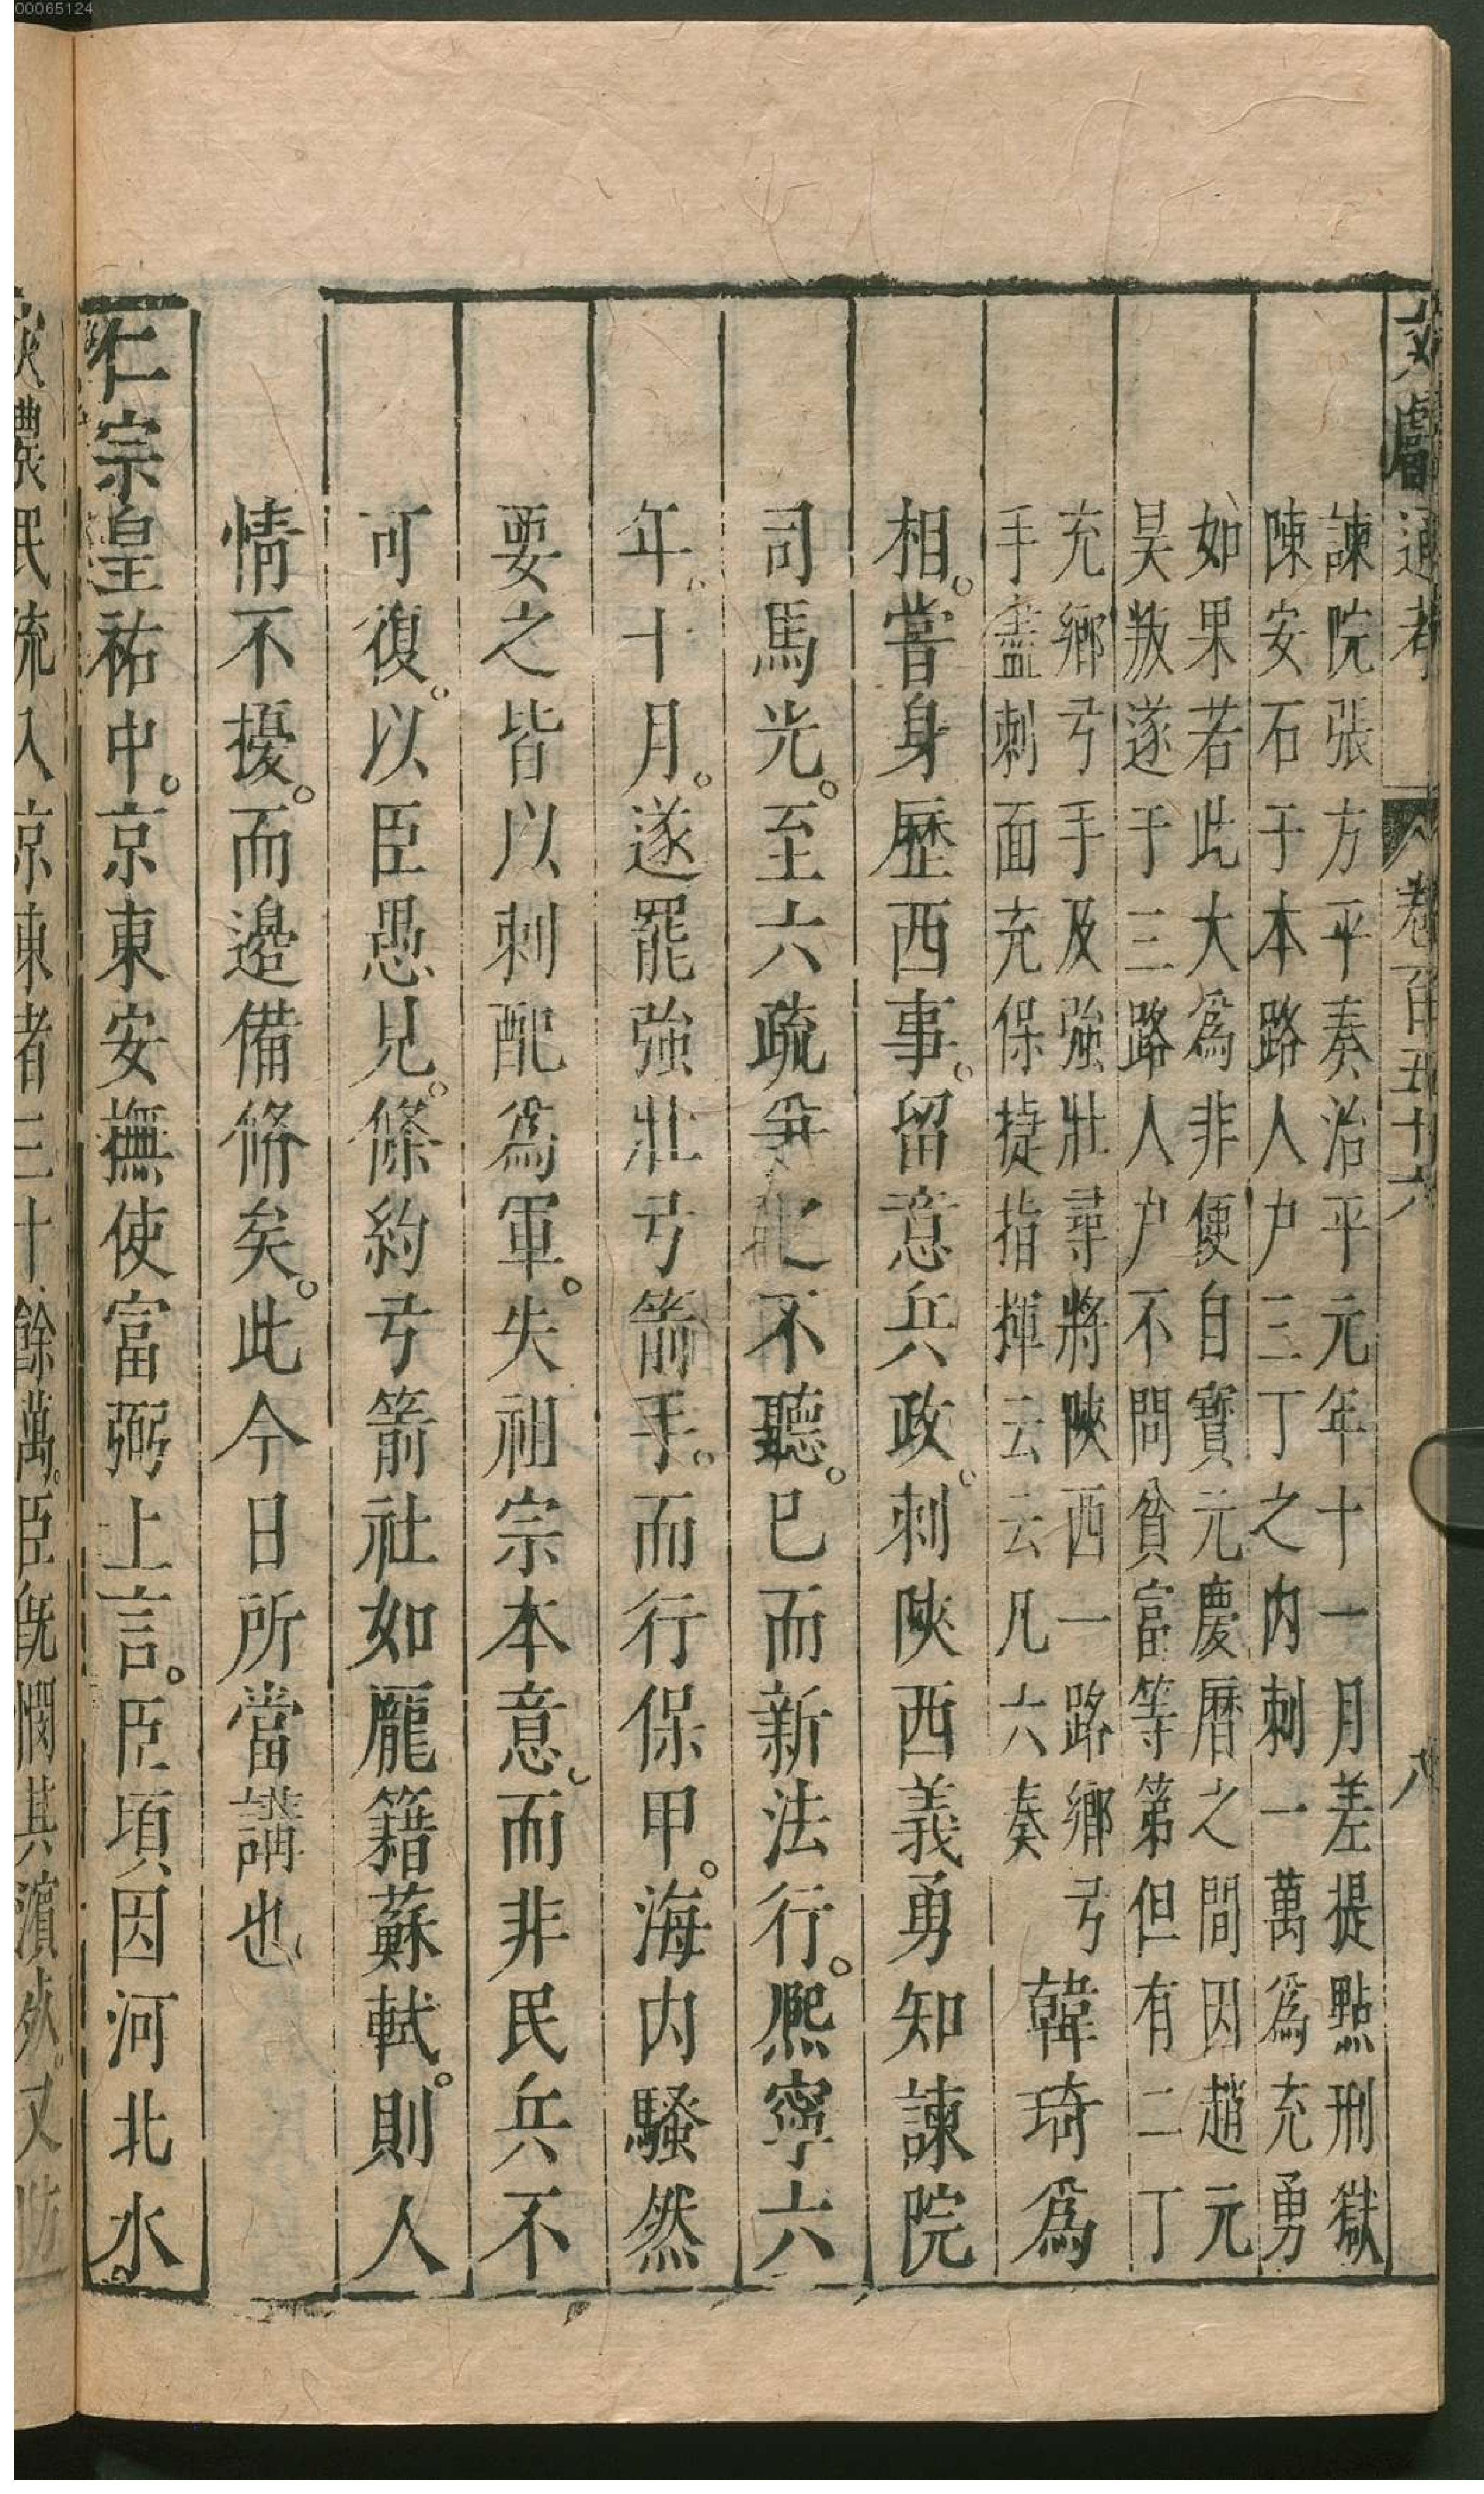 00065124
文獻通考 卷百五十六 八
諫院張方平奏治平元年十一月差提點刑獄
陳安石于本路人户三丁之内刺一萬爲充勇
如果若此大爲非便自寶元慶曆之間因趙元
昊叛遂于三路人户不問貧富等第但有二丁
充鄉弓手及強壯尋將陝西一路鄉弓
手盡刺面充保捷指揮云云凡六奏
韓琦爲
相。嘗身歷西事。留意兵政。刺陝西義勇知諫院
司馬光。至六疏爭之不聽。已而新法行。熈寧六
年。十月。遂罷強壯弓箭手。而行保甲。海内騷然
要之皆以刺配爲軍。失祖宗本意。而非民兵不
可復。以臣愚見。條約弓箭社如龐籍蘇軾。則人
情不擾。而邉備脩矣。此今日所當講也
仁宗皇祐中。京東安撫使富弼上言。臣頃因河北水。
災農民流入京東者三十餘萬。臣既憫其濵死。又防